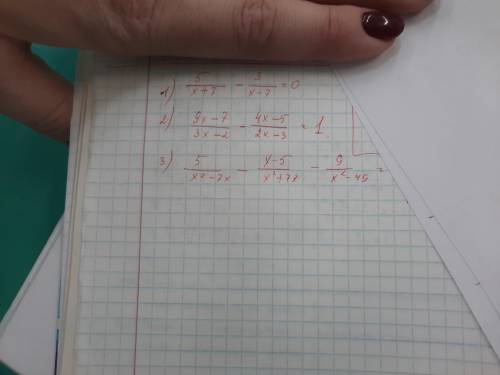 1) 5/(x+7) - 3/(x-7) = 0
2) (9x-7)/(3x-2) - (4x-5)/(2x-3) = 1.
3) 5/(x²-7x) - (x-5)/(x²+7x) - 9/(x²-49) =